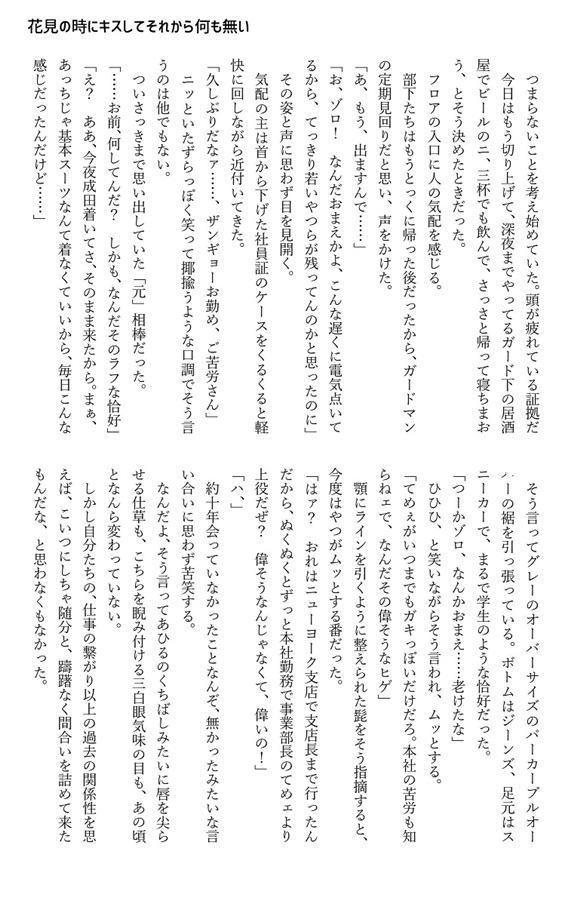 花見の時にキスしてそれから何も無い
つまらないことを考え始めていた。頭が疲れている証拠だ
今日はもう切り上げて、深夜までやってるガード下の居酒
屋でビールの二、三杯でも飲んで、さっさと帰って寝ちまお
う、とそう決めたときだった。
フロアの入口に人の気配を感じる。
部下たちはもうとっくに帰った後だったから、ガードマン
の定期見回りだと思い、声をかけた。
「あ、もう、出ますんで……」
「お、ゾロ！　なんだおまえかよ、こんな遅くに電気点いて
るから、てっきり若いやつらが残ってんのかと思ったのに」
その姿と声に思わず目を見開く。
気配の主は首から下げた社員証のケースをくるくると軽
快に回しながら近付いてきた。
「久しぶりだなァ……、ザンギョーお勤め、ご苦労さん」
ニッといたずらっぽく笑って揶揄うような口調でそう言
うのは他でもない。
ついさっきまで思い出していた「元」相棒だった。
「……お前、何してんだ？　しかも、なんだそのラフな恰好」
「え？　ああ、今夜成田着いてさ、そのまま来たから。まぁ、
あっちじゃ基本スーツなんて着なくていいから、毎日こんな
感じだったんだけど……」
そう言ってグレーのオーバーサイズのパーカープルオー
バーの裾を引っ張っている。ボトムはジーンズ、足元はス
ニーカーで、まるで学生のような恰好だった。
「つーかゾロ、なんかおまえ……老けたな」
ひひひ、と笑いながらそう言われ、ムッとする。
「てめぇがいつまでもガキっぽいだけだろ。本社の苦労も知
らねェで、なんだその偉そうなヒゲ」
顎にラインを引くように整えられた髭をそう指摘すると、
今度はやつがムッとする番だった。
「はァ？　おれはニューヨーク支店で支店長まで行ったん
だから、ぬくぬくとずっと本社勤務で事業部長のてめェより
上役だぜ？　偉そうなんじゃなくて、偉いの！」
「ハ、」
約十年会っていなかったことなんぞ、無かったみたいな言
い合いに思わず苦笑する。
なんだよ、そう言ってあひるのくちばしみたいに唇を尖ら
せる仕草も、こちらを睨み付ける三白眼気味の目も、あの頃
となんら変わっていない。
しかし自分たちの、仕事の繋がり以上の過去の関係性を思
えば、こいつにしちゃ随分と、躊躇なく間合いを詰めて来た
もんだな、と思わなくもなかった。